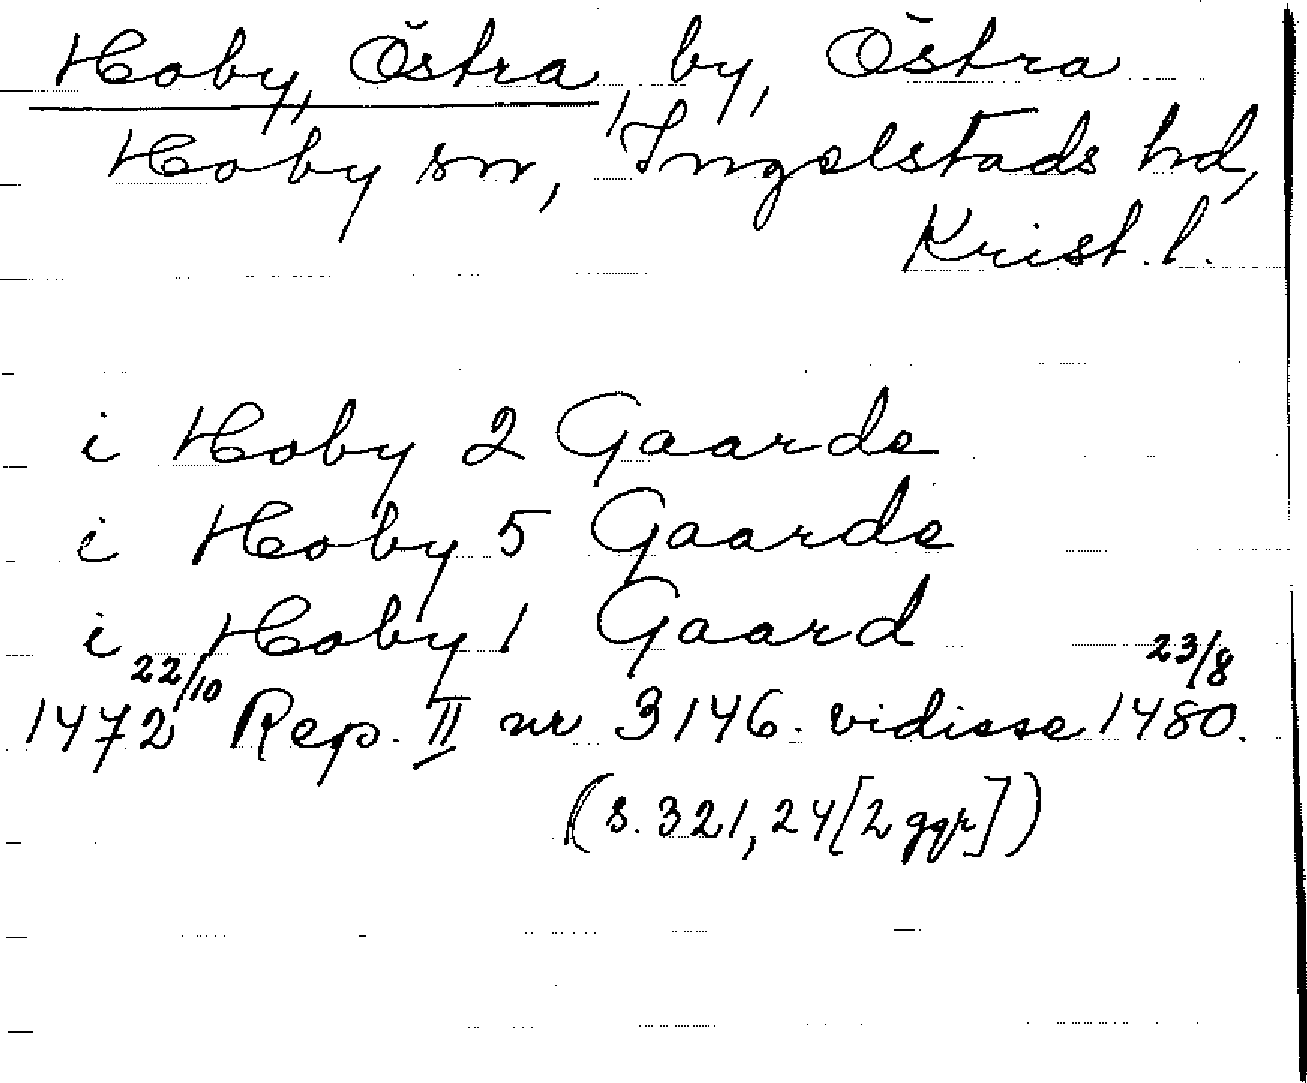 Hoby, Östra, by, Östra
Hoby sn, Ingelstads hd,
Krist. l.
i Hoby 2 Gaarde
i Hoby 5 Gaarde
i Hoby 1 Gaard
1472 22/10 Rep. II nr 3146. vidisse 1480. 23/8
(s. 321, 24 [2 ggr])